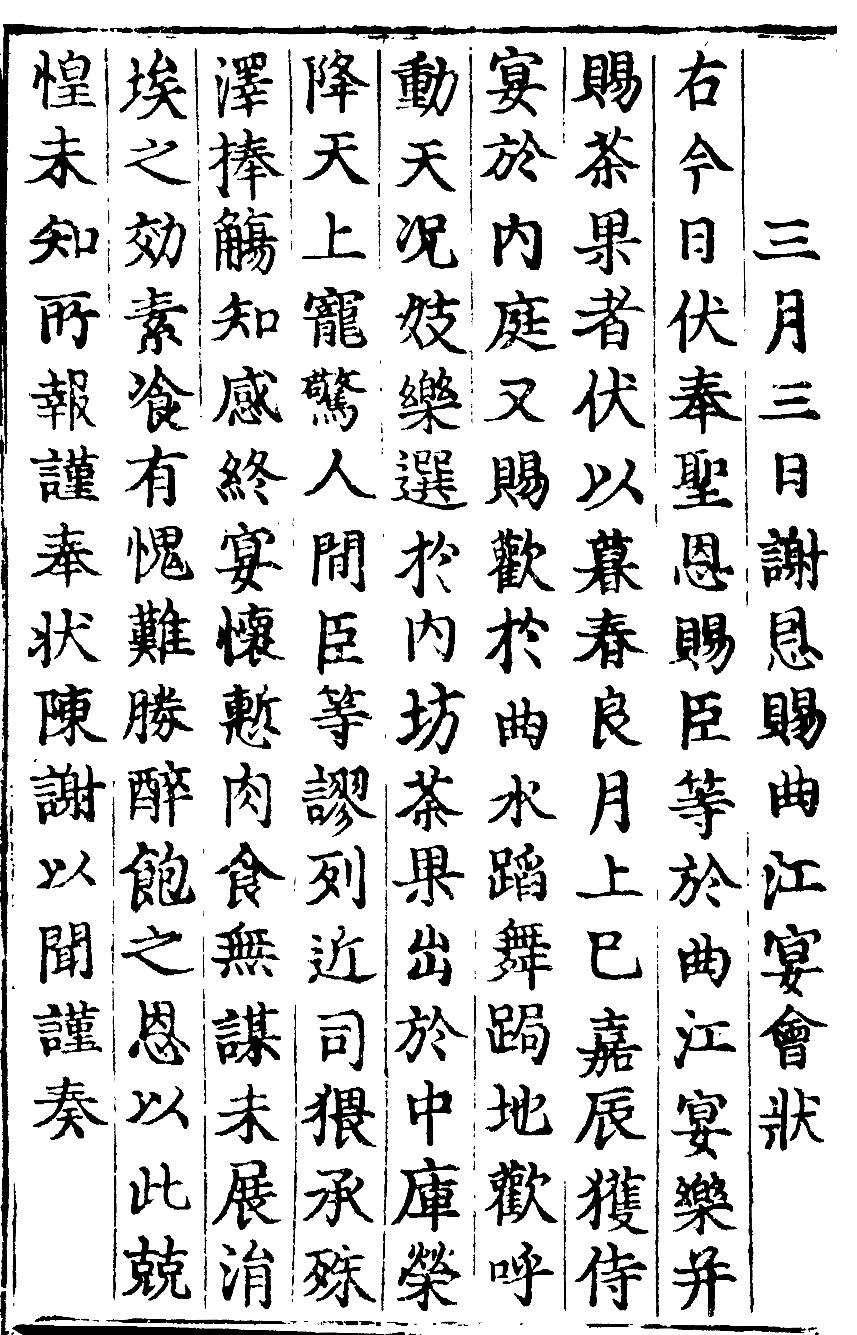 三月三日謝恩賜曲江宴會狀
右今日伏奉聖恩賜臣等於曲江宴樂并
賜茶果者伏以暮春良月上巳嘉辰獲侍
宴於內庭又賜歡於曲水蹈舞跼地歡呼
動天況妓樂選於內坊茶果出於中庫榮
降天上寵驚人間臣等謬列近司猥承殊
澤捧觴知感終宴懷慙肉食無謀未展涓
埃之効素飡有愧難勝醉飽之恩以此兢
惶未知所報謹奉狀陳謝以聞謹奏